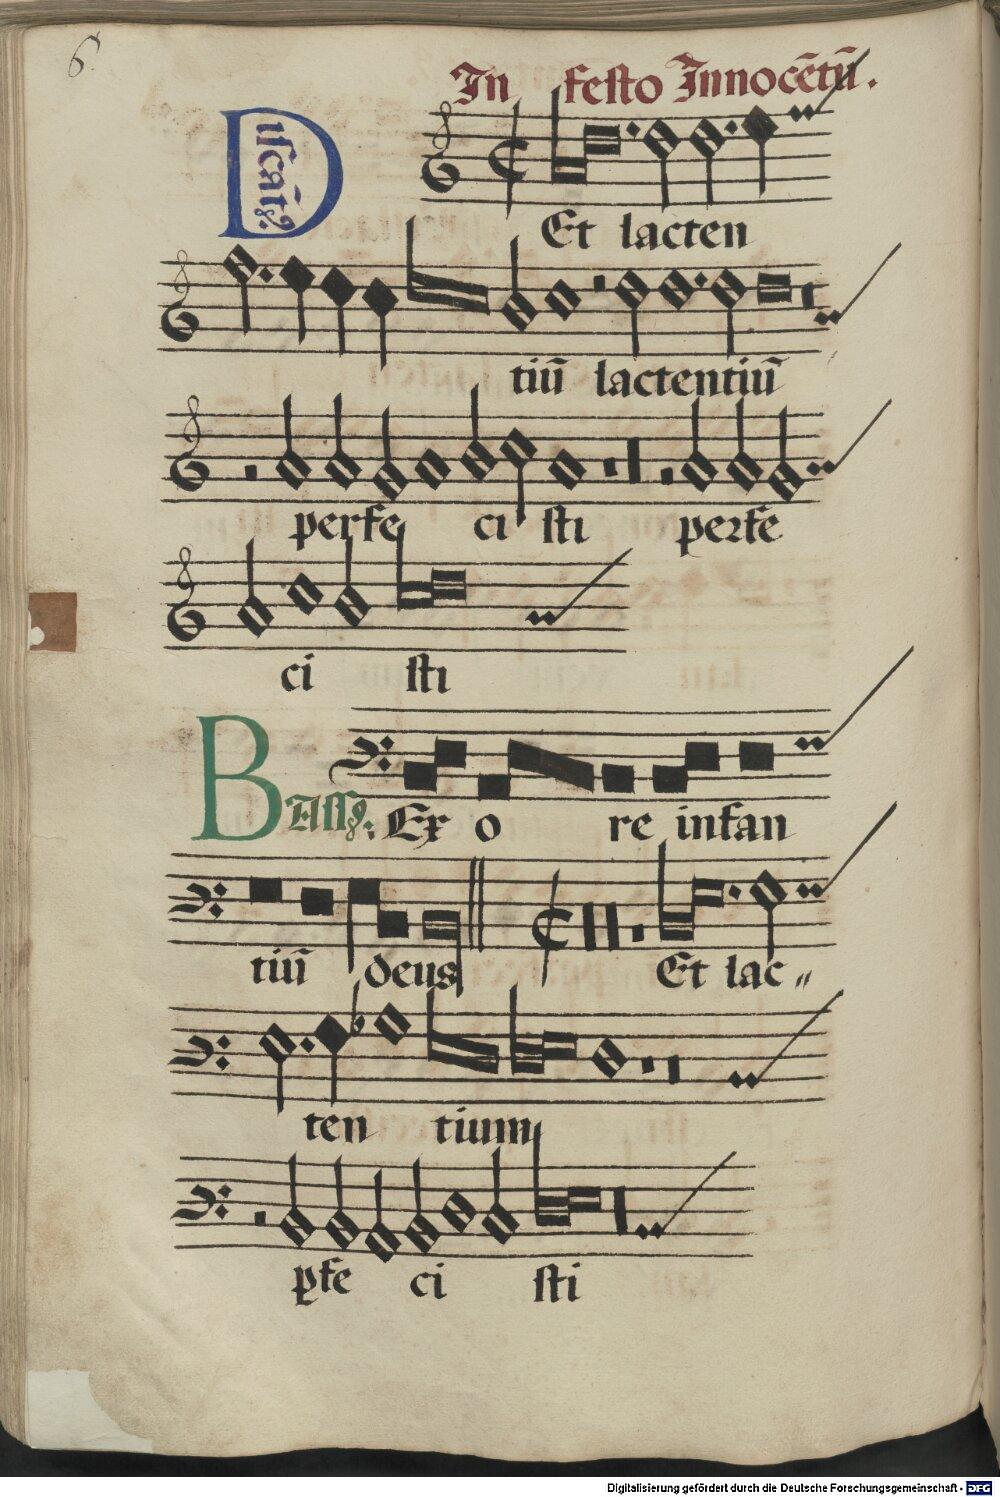 6.
In festo Innocētū.
Discātꝰ.
Et lacten
tiū lactentiū
perfe ci sti perfe
ci sti
Bassꝰ. Ex o re infan
tiū deus Et lac〃
ten tium
ꝑfe ci sti
Digitalisierung gefördert durch die Deutsche Forschungsgemeinschaft - DFG